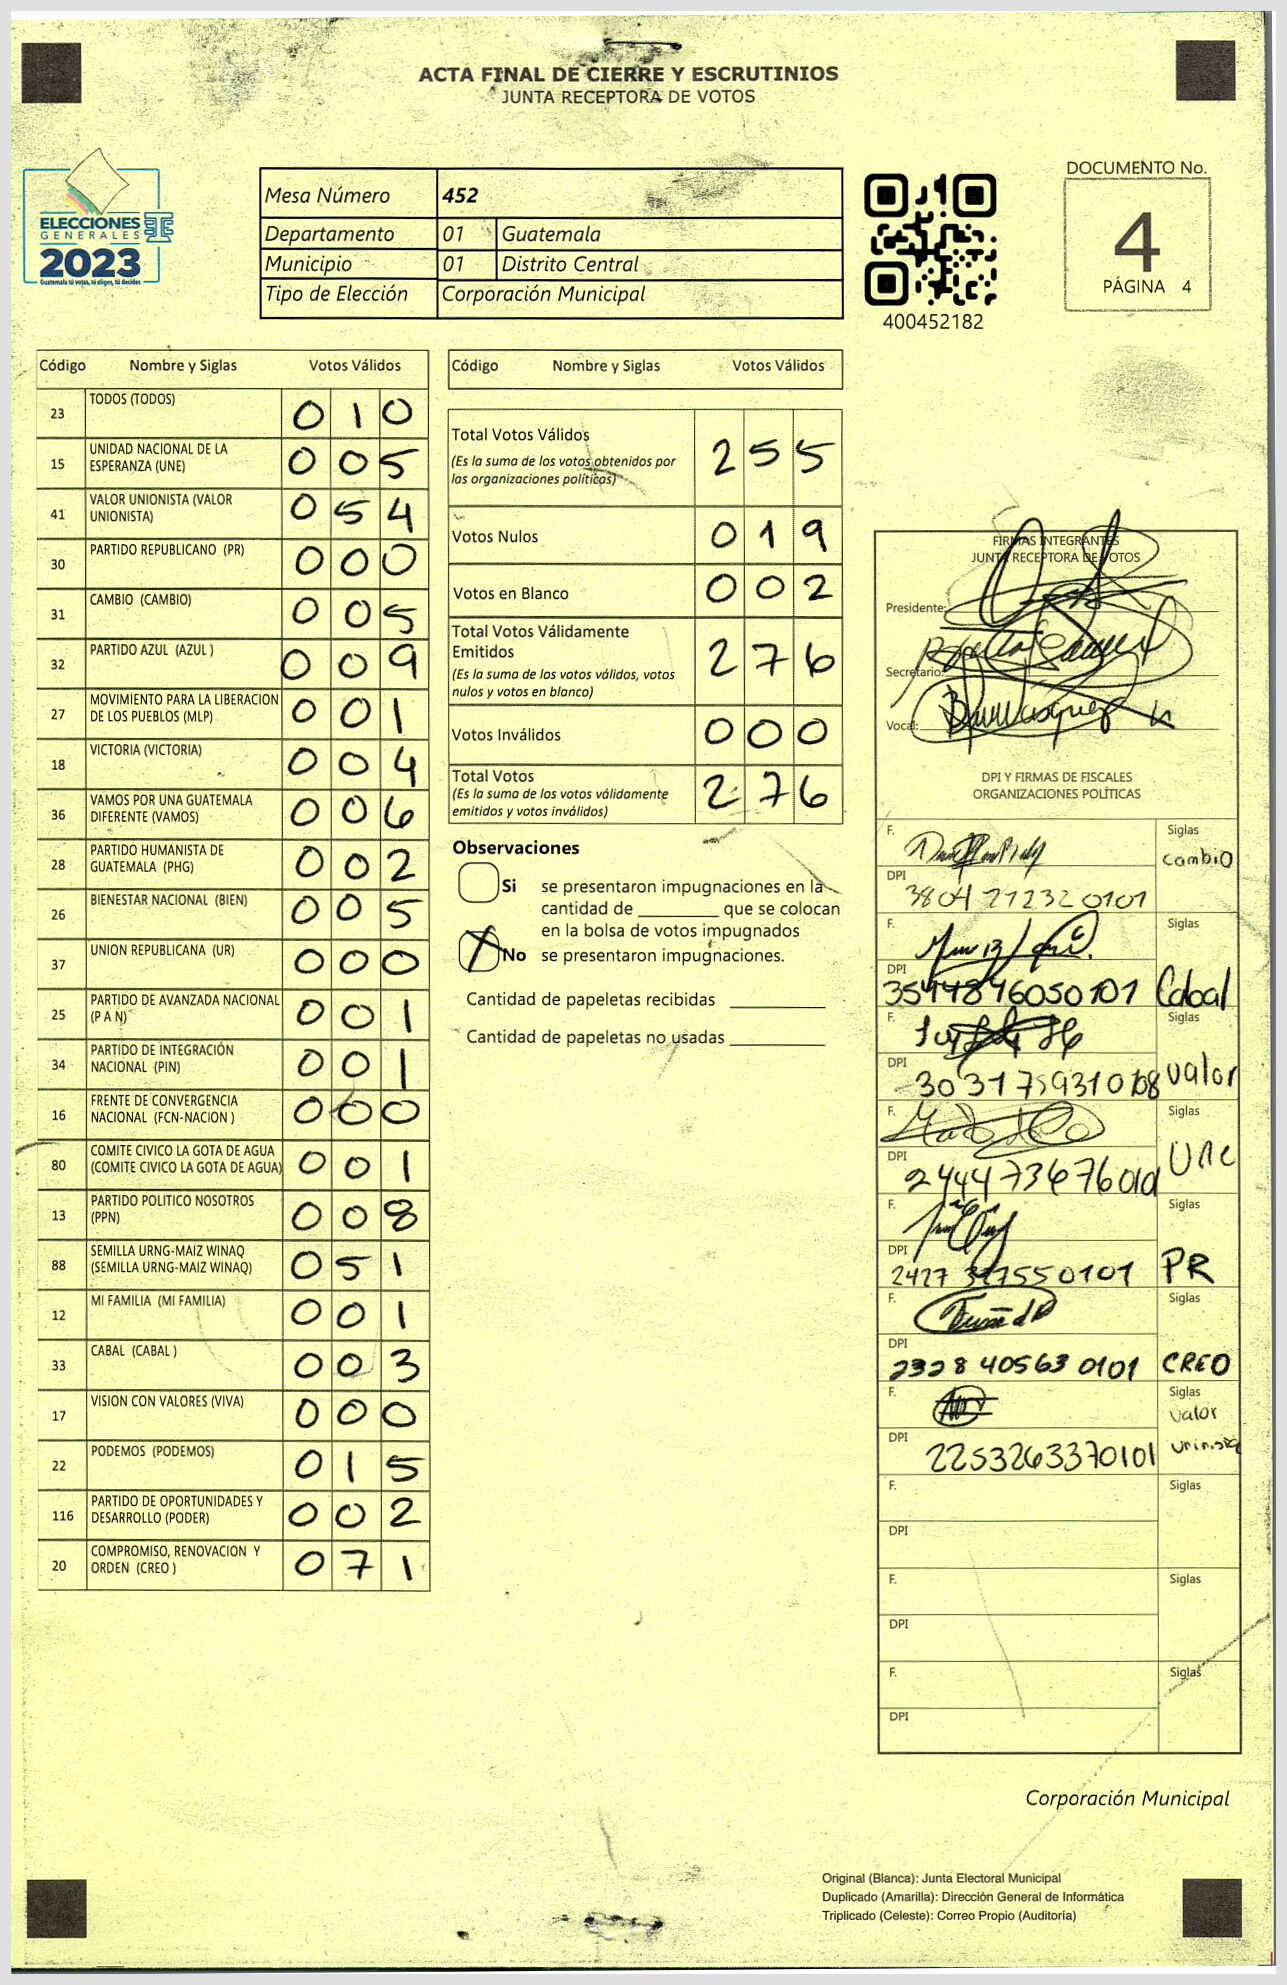 ACTA FINAL DE CIERRE Y ESCRUTINIOS
JUNTA RECEPTORA DE VOTOS
ELECCIONES
GENERALES
2023
Guatemala tú votas, tú eliges, tú decides
Mesa Número 452
Departamento 01 Guatemala
Municipio 01 Distrito Central
Tipo de Elección Corporación Municipal
400452182
DOCUMENTO No.
4
PÁGINA 4
Código Nombre y Siglas Votos Válidos
23 TODOS (TODOS) 0 1 0
15 UNIDAD NACIONAL DE LA ESPERANZA (UNE) 0 0 5
41 VALOR UNIONISTA (VALOR UNIONISTA) 0 5 4
30 PARTIDO REPUBLICANO (PR) 0 0 0
31 CAMBIO (CAMBIO) 0 0 5
32 PARTIDO AZUL (AZUL ) 0 0 9
27 MOVIMIENTO PARA LA LIBERACION DE LOS PUEBLOS (MLP) 0 0 1
18 VICTORIA (VICTORIA) 0 0 4
36 VAMOS POR UNA GUATEMALA DIFERENTE (VAMOS) 0 0 6
28 PARTIDO HUMANISTA DE GUATEMALA (PHG) 0 0 2
26 BIENESTAR NACIONAL (BIEN) 0 0 5
37 UNION REPUBLICANA (UR) 0 0 0
25 PARTIDO DE AVANZADA NACIONAL (P A N) 0 0 1
34 PARTIDO DE INTEGRACIÓN NACIONAL (PIN) 0 0 1
16 FRENTE DE CONVERGENCIA NACIONAL (FCN-NACION ) 0 0 0
80 COMITE CIVICO LA GOTA DE AGUA (COMITE CIVICO LA GOTA DE AGUA) 0 0 1
13 PARTIDO POLITICO NOSOTROS (PPN) 0 0 8
88 SEMILLA URNG-MAIZ WINAQ (SEMILLA URNG-MAIZ WINAQ) 0 5 1
12 MI FAMILIA (MI FAMILIA) 0 0 1
33 CABAL (CABAL ) 0 0 3
17 VISION CON VALORES (VIVA) 0 0 0
22 PODEMOS (PODEMOS) 0 1 5
116 PARTIDO DE OPORTUNIDADES Y DESARROLLO (PODER) 0 0 2
20 COMPROMISO, RENOVACION Y ORDEN (CREO ) 0 7 1
Código Nombre y Siglas Votos Válidos
Total Votos Válidos 2 5 5
(Es la suma de los votos obtenidos por
las organizaciones políticas)
Votos Nulos 0 1 9
Votos en Blanco 0 0 2
Total Votos Válidamente
Emitidos 2 7 6
(Es la suma de los votos válidos, votos
nulos y votos en blanco)
Votos Inválidos 0 0 0
Total Votos 2 7 6
(Es la suma de los votos válidamente
emitidos y votos inválidos)
Observaciones
Si se presentaron impugnaciones en la
cantidad de ________ que se colocan
en la bolsa de votos impugnados
X No se presentaron impugnaciones.
Cantidad de papeletas recibidas
Cantidad de papeletas no usadas
FIRMAS INTEGRANTES
JUNTA RECEPTORA DE VOTOS
Presidente:
Secretario:
Vocal:
DPI Y FIRMAS DE FISCALES
ORGANIZACIONES POLÍTICAS
F. Siglas
cambio
DPI
3804 21232 0101
F. Siglas
DPI
Cabal
F. Siglas
DPI
valor
F. Siglas
DPI
Une
F. Siglas
DPI
PR
F. Siglas
DPI
2328 40563 0101 CREO
F. Siglas
valor
DPI
2253263370101
F. Siglas
DPI
F. Siglas
DPI
F. Siglas
DPI
Corporación Municipal
Original (Blanca): Junta Electoral Municipal
Duplicado (Amarilla): Dirección General de Informática
Triplicado (Celeste): Correo Propio (Auditoría)